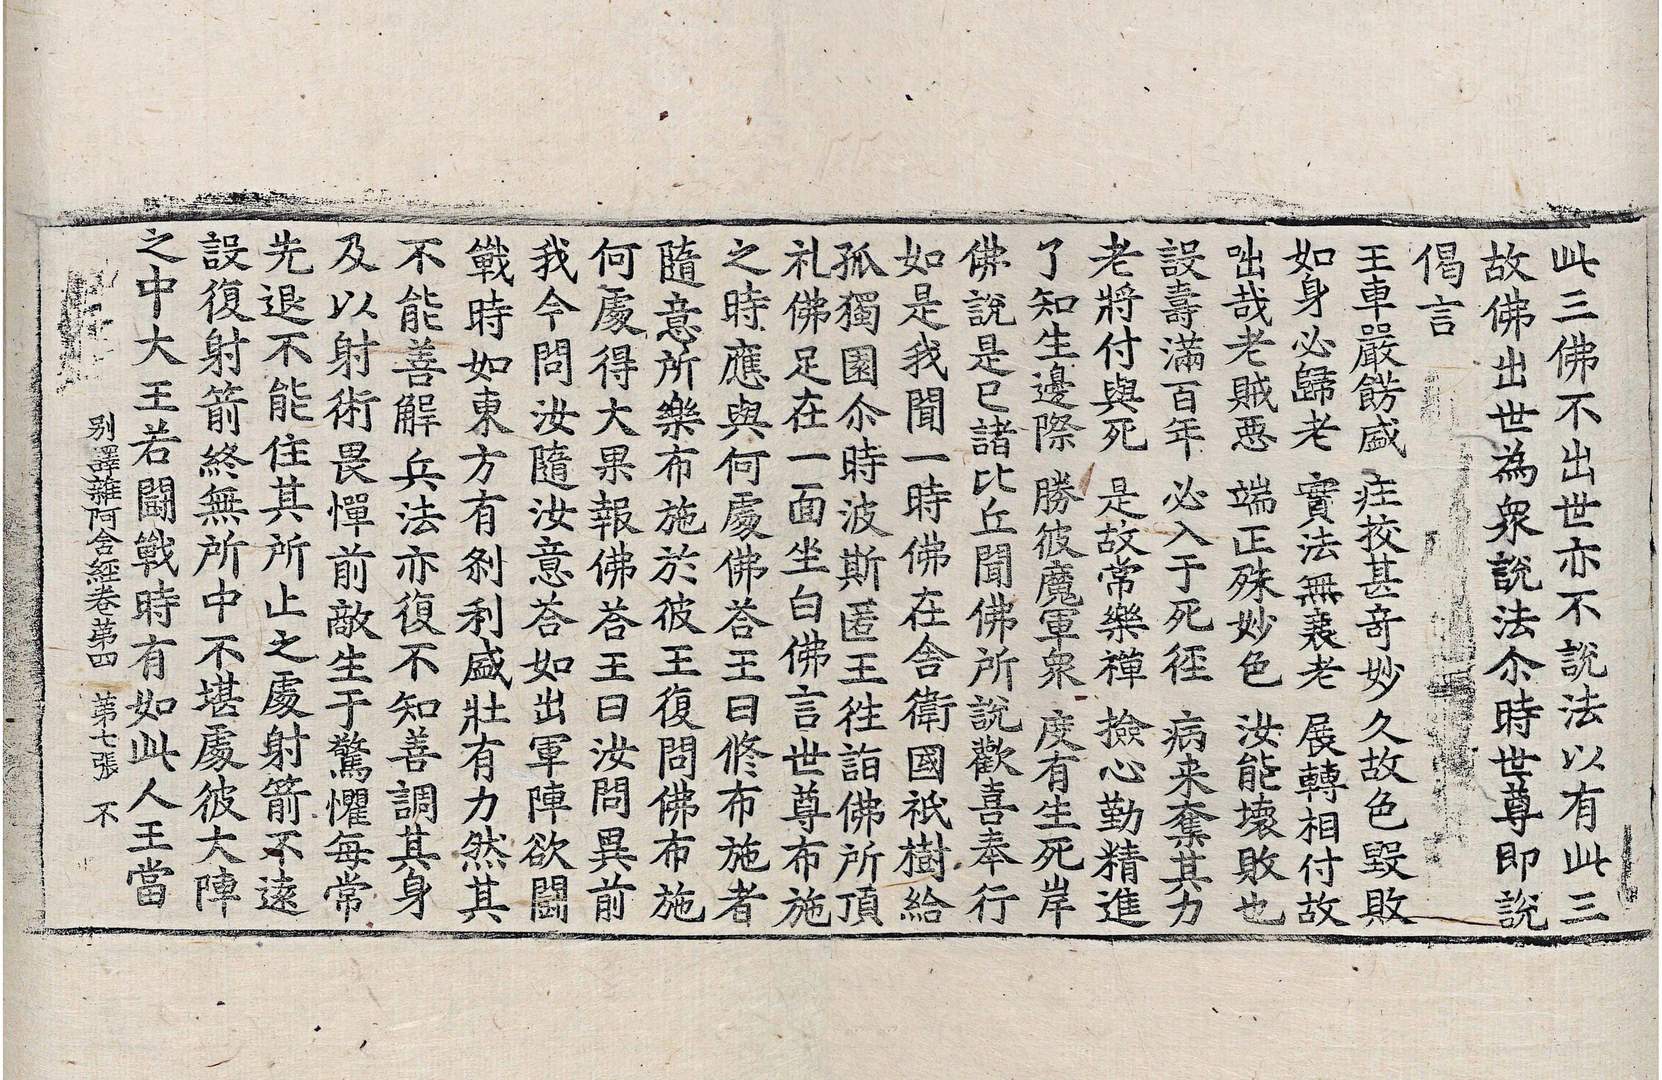 此三佛不出世亦不說法以有此三
故佛出世為衆說法尒時世尊即說
偈言
王車嚴餝盛　㽵挍甚竒妙　久故色毀敗
如身必歸老　實法無衰老　展轉相付故
咄哉老賊惡　端正殊妙色　汝能壞敗也
設壽滿百年　必入于死徑　病来奪其力
老將付與死　是故常樂禅　撿心勤精進
了知生邊際　勝彼魔軍衆　度有生死岸
佛說是已諸比丘聞佛所說歡喜奉行
如是我聞一時佛在舍衛國祇樹給
孤獨園尒時波斯匿王徃詣佛所頂
礼佛足在一面坐白佛言世尊布施
之時應與何處佛荅王曰修布施者
隨意所樂布施於彼王復問佛布施
何處得大果報佛荅王曰汝問異前
我今問汝隨汝意荅如出軍陣欲鬪
戰時如東方有剎利盛壯有力然其
不能善解兵法亦復不知善調其身
及以射術畏憚前敵生于驚懼每常
先退不能住其所止之處射箭不遠
設復射箭終無所中不堪處彼大陣
之中大王若鬪戰時有如此人王當
別譯雜阿含經卷第四　第七張　不